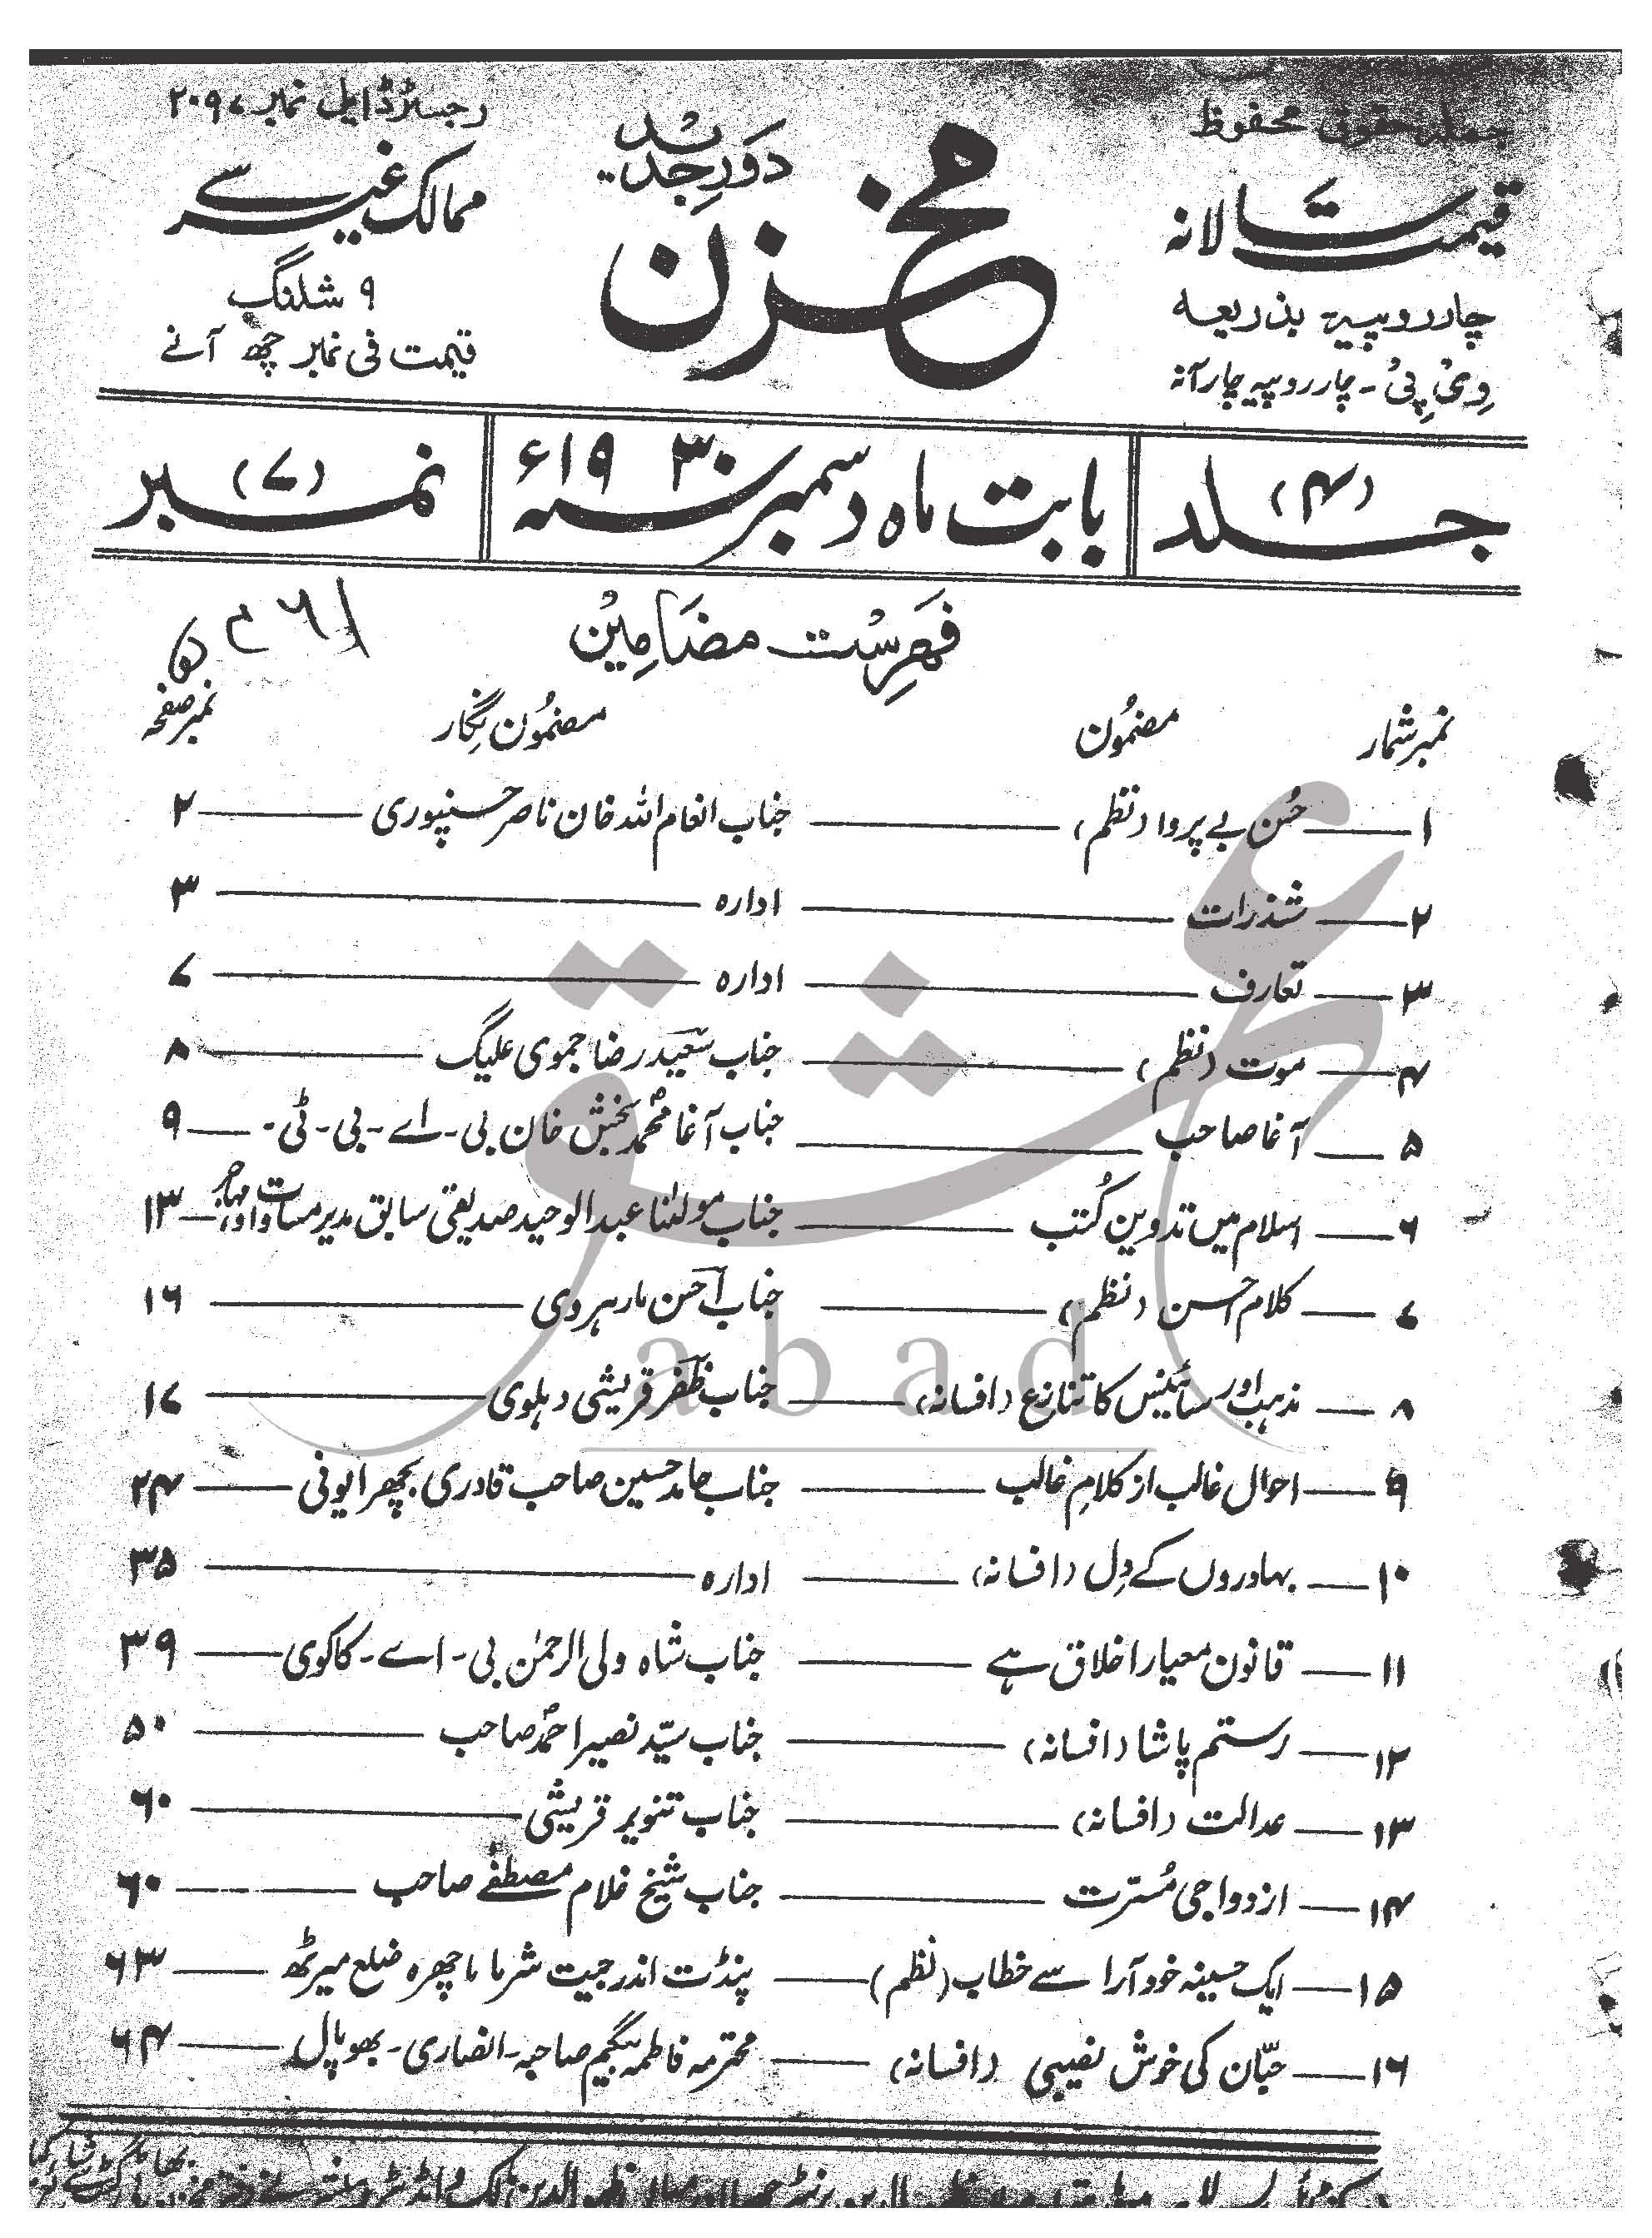 جملہ حقوق محفوظ
رجسٹرڈ ایل نمبر ۲۰۹۷
دورِ جدید
مخزن
قیمت سالانہ
چار روپیہ بذریعہ
وی پی - چار روپیہ چار آنہ
ممالک غیر سے
۹ شلنگ
قیمت فی نمبر چھ آنے
جلد (۴) بابت ماہ دسمبر سنہ ۱۹۳۰ء نمبر (۷)
فہرست مضامین
نمبر شمار مضمون مضمون نگار نمبر صفحہ
۱ — حُسن بے پروا (نظم) — جناب انعام اللہ خان ناصر حسنپوری — ۲
۲ — شذرات — ادارہ — ۳
۳ — تعارف — ادارہ — ۷
۴ — موت (نظم) — جناب سعید رضا جموی علیگ — ۸
۵ — آغا صاحب — جناب آغا محمد بخش خان بی - اے - بی - ٹی - — ۹
۶ — اسلام میں تدوین کُتب — جناب مولٰنا عبدالوحید صدیقی سابق مدیر مساوات و مہاجر — ۱۳
۷ — کلام احسن (نظم) — جناب احسن مارہروی — ۱۶
۸ — مذہب اور سائینس کا تنازع (افسانہ) — جناب ظفر قریشی دہلوی — ۱۷
۹ — احوال غالب از کلامِ غالب — جناب حامد حسین صاحب قادری بچھرایونی — ۲۴
۱۰ — بہادروں کے دِل (افسانہ) — ادارہ — ۳۵
۱۱ — قانون معیار اخلاق ہے — جناب شاہ ولی الرحمٰن بی - اے - کاکوی — ۳۹
۱۲ — رستم پاشا (افسانہ) — جناب سیّد نصیر احمد صاحب — ۵۰
۱۳ — عدالت (افسانہ) — جناب تنویر قریشی — ۶۰
۱۴ — ازدواجی مُسترت — جناب شیخ غلام مصطفٰے صاحب — ۶۰
۱۵ — ایک حسینہ خود آرا سے خطاب (نظم) — پنڈت اندرجیت شرما ماچھرہ ضلع میرٹھ — ۶۳
۱۶ — حبّان کی خوش نصیبی (افسانہ) — محترمہ فاطمہ بیگم صاحبہ - انصاری - بھوپال — ۶۴
عشق
abad